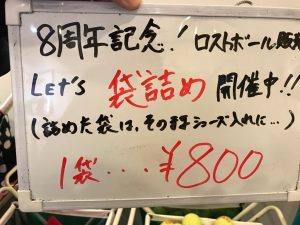 8周年記念! ロストボール販売
Let's 袋詰め 開催中!!
(詰めた袋は、そのままシューズ入れに…)
1袋・・・¥800